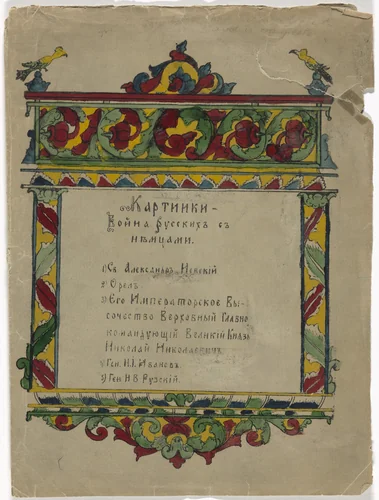 Картинки -
Война русскихъ съ
нѣмцами.
1) Св. Александръ Невскій
2) Орелъ
3) Его Императорское Вы-
сочество Верховный Главно
командующій Великій Князь
Николай Николаевичъ
4) Ген. Н.І. Ивановъ.
5) Ген. Н В Рузскій.